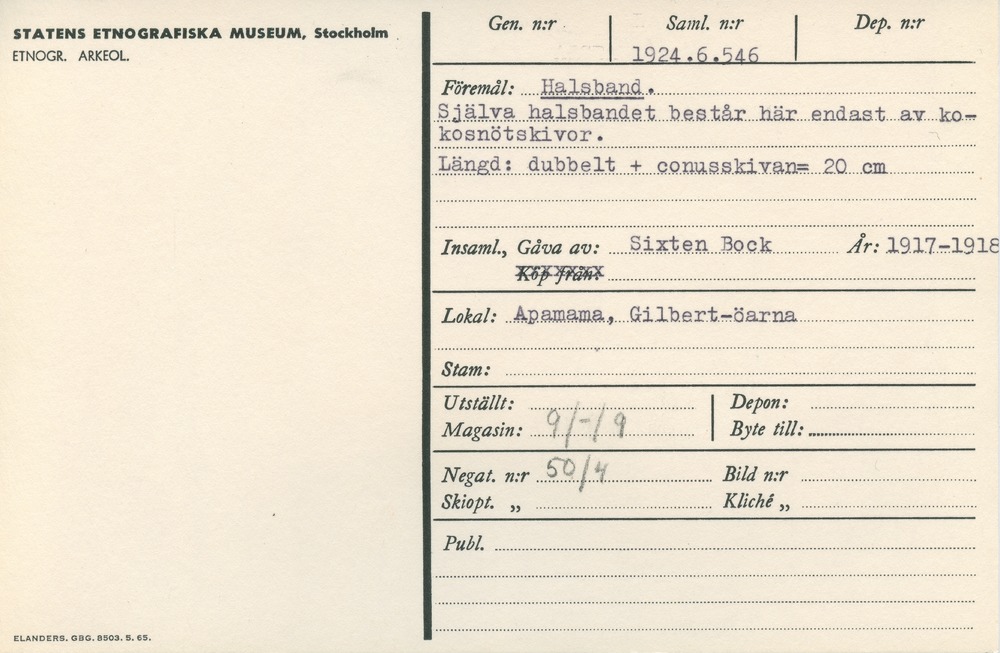 STATENS ETNOGRAFISKA MUSEUM, Stockholm
ETNOGR. ARKEOL.
Gen. n:r Saml. n:r Dep. n:r
1924.6.546
Föremål: Halsband.
Själva halsbandet består här endast av ko-
kosnötskivor.
Längd: dubbelt + conusskivan= 20 cm
Insaml., Gåva av: Sixten Bock År: 1917-1918
Köp från:
Lokal: Apamama, Gilbert-öarna
Stam:
Utställt: Depon:
Magasin: 9/-/9 Byte till:
Negat. n:r 50/4 Bild n:r
Skiopt. „ Kliché „
Publ.
ELANDERS. GBG. 8503. 5. 65.